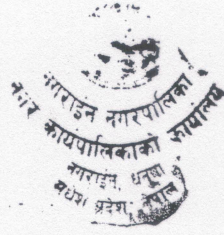 नगराईन नगरपालिका
नगर कार्यपालिकाको कार्यालय
नगराईन, धनुषा
मधेश प्रदेश, नेपाल